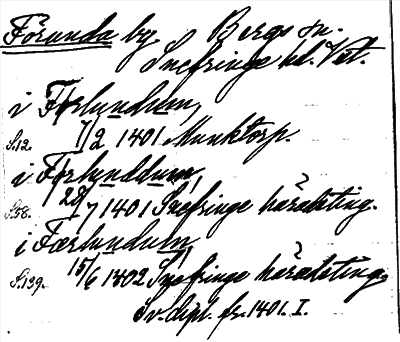 Förunda by, Bergs sn.
Snefringe hd. Vst.
i Forlundum,
S.12. 7/2 1401 Munktorp.
i Forlunddum,
S.58. 28/7 1401 Snefringe häradsting.
i Færlundum,
S.139. 15/6 1402 Snefringe häradsting,
Sv. dipl. fr. 1401. I.